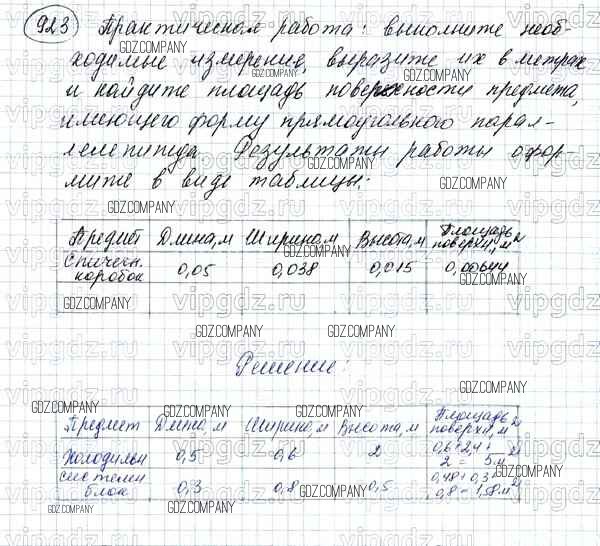 923 Практическая работа: выполните необ-
ходимые измерения, выразите их в метрах
и найдите площадь поверхности предмета,
имеющего форму прямоугольного парал-
лелепипеда. Результаты работы офор-
мите в виде таблицы:
Предмет Длина,м Ширина,м Высота,м Площадь поверхн,м²
Спичечн. коробок 0,05 0,038 0,015 0,00644
Решение:
Предмет Длина,м Ширина,м Высота,м Площадь поверхн,м²
Холодильн 0,5 0,6 2 0,6+2,4+2 = 5м²
системн блок 0,3 0,8 0,5 0,48+0,3+0,8=1,58м²
GDZ.COMPANY
vipgdz.ru